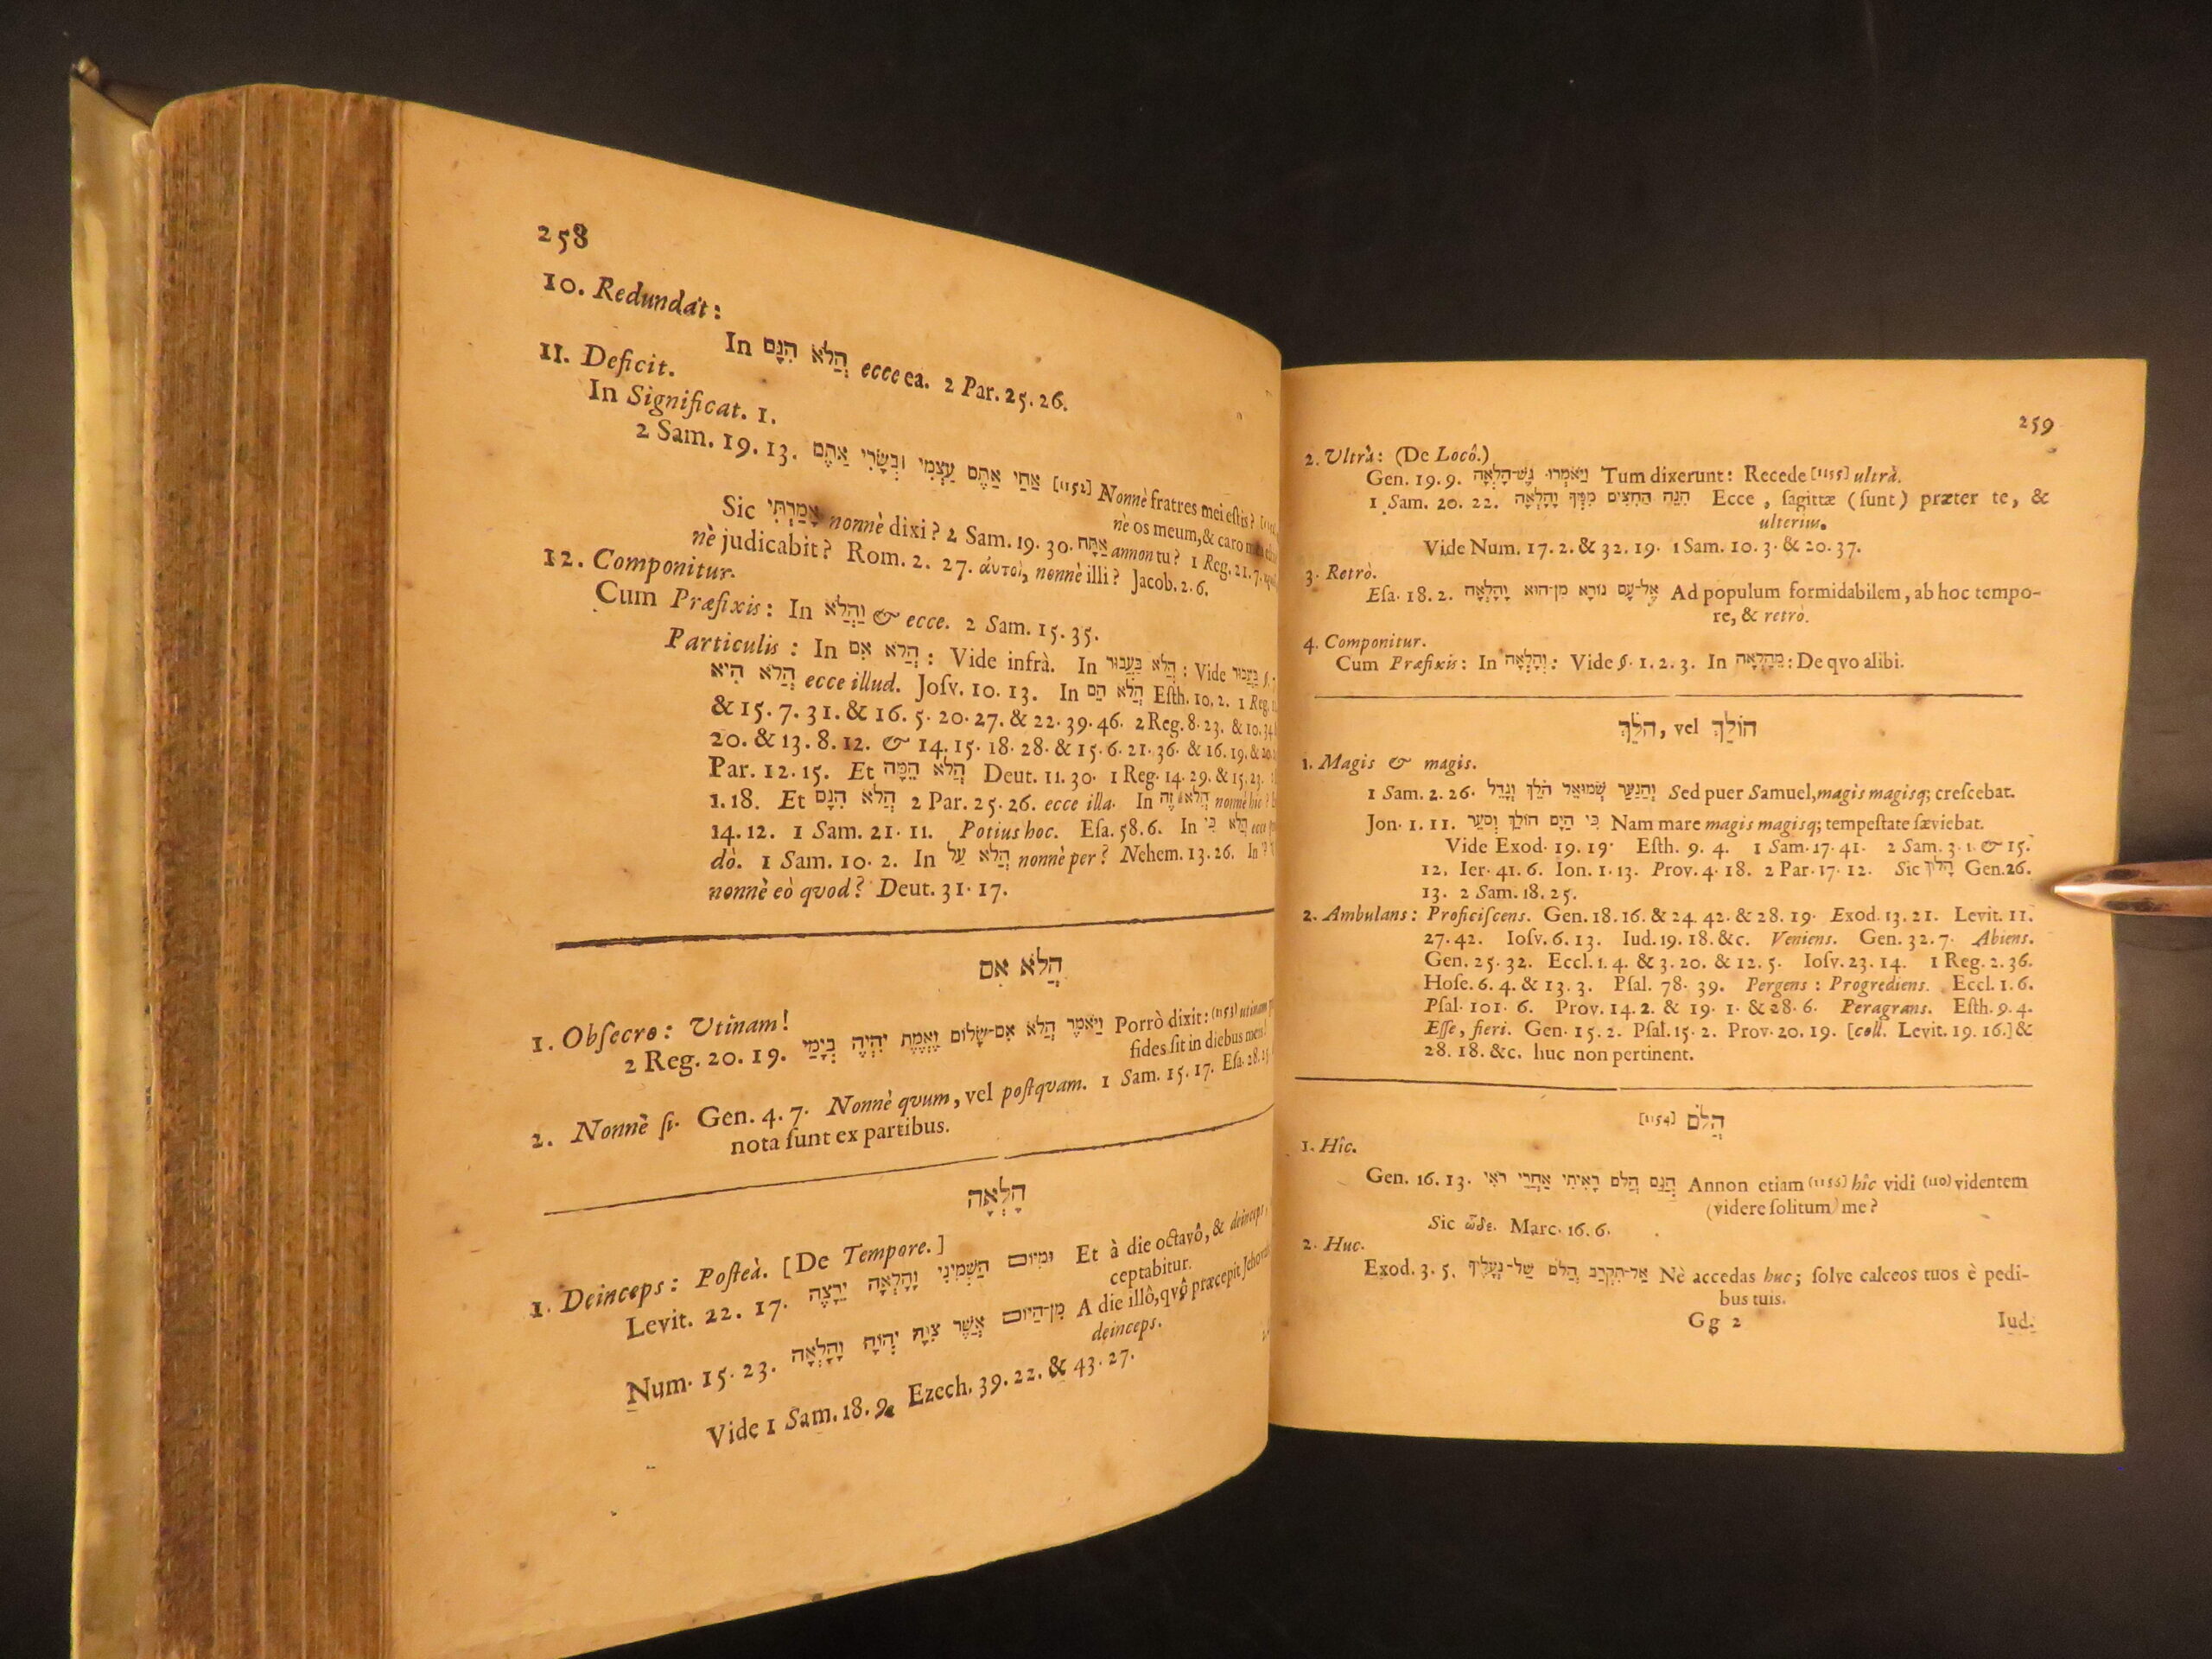 258
10. Redundat:
In הֲלֹא הִנָּם ecce ea. 2 Par. 25. 26.
11. Deficit.
In Significat. 1.
2 Sam. 19. 13. אַחַי אַתֶּם עַצְמִי וּבְשָׂרִי אַתֶּם [1152] Nonnè fratres mei eſtis?
nè os meum, & caro
Sic אָמַרְתִּי nonnè dixi? 2 Sam. 19. 30. אַתָּה annon tu? 1 Reg. 21. 7.
nè judicabit? Rom. 2. 27. ἀυτοὶ, nonnè illi? Jacob. 2. 6.
12. Componitur.
Cum Præfixis: In וַהֲלֹא & ecce. 2 Sam. 15. 35.
Particulis: In הֲלֹא אִם: Vide infrà. In הֲלֹא בַּעֲבוּר: Vide בַּעֲבוּר
הֲלֹא הִיא ecce illud. Joſv. 10. 13. In הֲלֹא הֵם Eſth. 10. 2. 1 Reg.
& 15. 7. 31. & 16. 5. 20. 27. & 22. 39. 46. 2 Reg. 8. 23. & 10. 34
20. & 13. 8. 12. & 14. 15. 18. 28. & 15. 6. 21. 36. & 16. 19. &
Par. 12. 15. Et הֲלֹא הֵמָּה Deut. 11. 30. 1 Reg. 14. 29. & 15. 23.
1. 18. Et הֲלֹא הִנָּם 2 Par. 25. 26. ecce illa. In הֲלֹא זֶה nonnè hic?
14. 12. 1 Sam. 21. 11. Potius hoc. Eſa. 58. 6. In הֲלֹא כִּי ecce
dò. 1 Sam. 10. 2. In הֲלֹא עַל nonnè per? Nehem. 13. 26. In
nonnè eò quod? Deut. 31. 17.
הֲלֹא אִם
1. Obſecro: Utinam!
2 Reg. 20. 19. וַיֹּאמֶר הֲלֹא אִם-שָׁלוֹם וֶאֱמֶת יִהְיֶה בְיָמַי Porrò dixit: (1153) utinam
fides ſit in diebus meis!
2. Nonnè ſi. Gen. 4. 7. Nonnè qvum, vel poſtqvam. 1 Sam. 15. 17. Eſa. 28. 25
nota ſunt ex partibus.
הָלְאָה
1. Deinceps: Poſteà. [De Tempore.]
Levit. 22. 17. וּמִיּוֹם הַשְּׁמִינִי וָהָלְאָה יֵרָצֶה Et à die octavô, & deinceps,
ceptabitur.
Num. 15. 23. מִן-הַיּוֹם אֲשֶׁר צִוָּה יְהוָה וָהָלְאָה A die illô, qvô præcepit Jehova
deinceps.
Vide 1 Sam. 18. 9. Ezech. 39. 22. & 43. 27.
259
2. Ultrà: (De Locô.)
Gen. 19. 9. וַיֹּאמְרוּ גֶּשׁ-הָלְאָה Tum dixerunt: Recede [1155] ultrà.
1 Sam. 20. 22. הִנֵּה הַחִצִּים מִמְּךָ וָהָלְאָה Ecce, ſagittæ (ſunt) præter te, &
ulterius.
Vide Num. 17. 2. & 32. 19. 1 Sam. 10. 3. & 20. 37.
3. Retrò.
Eſa. 18. 2. אֶל-עַם נוֹרָא מִן-הוּא וָהָלְאָה Ad populum formidabilem, ab hoc tempo-
re, & retrò.
4. Componitur.
Cum Præfixis: In וָהָלְאָה: Vide §. 1. 2. 3. In מֵהָלְאָה: De qvo alibi.
הֹלֵךְ, vel הוֹלֵךְ
1. Magis & magis.
1 Sam. 2. 26. וְהַנַּעַר שְׁמוּאֵל הֹלֵךְ וְגָדֵל Sed puer Samuel, magis magisq; creſcebat.
Jon. 1. 11. כִּי הַיָּם הוֹלֵךְ וְסֹעֵר Nam mare magis magisq; tempeſtate ſæviebat.
Vide Exod. 19. 19. Eſth. 9. 4. 1 Sam. 17. 41. 2 Sam. 3. 1. & 15.
12. Ier. 41. 6. Ion. 1. 13. Prov. 4. 18. 2 Par. 17. 12. Sic הָלוֹךְ Gen. 26.
13. 2 Sam. 18. 25.
2. Ambulans: Proficiſcens. Gen. 18. 16. & 24. 42. & 28. 19. Exod. 13. 21. Levit. 11.
27. 42. Ioſv. 6. 13. Iud. 19. 18. &c. Veniens. Gen. 32. 7. Abiens.
Gen. 25. 32. Eccl. 1. 4. & 3. 20. & 12. 5. Ioſv. 23. 14. 1 Reg. 2. 36.
Hoſe. 6. 4. & 13. 3. Pſal. 78. 39. Pergens: Progrediens. Eccl. 1. 6.
Pſal. 101. 6. Prov. 14. 2. & 19. 1. & 28. 6. Peragrans. Eſth. 9. 4.
Eſſe, fieri. Gen. 15. 2. Pſal. 15. 2. Prov. 20. 19. [coll. Levit. 19. 16.] &
28. 18. &c. huc non pertinent.
[1154] הֲלֹם
1. Hîc.
Gen. 16. 13. הֲגַם הֲלֹם רָאִיתִי אַחֲרֵי רֹאִי Annon etiam (1156) hîc vidi (110) videntem
(videre ſolitum) me?
Sic ὧδε. Marc. 16. 6.
2. Huc.
Exod. 3. 5. אַל-תִּקְרַב הֲלֹם שַׁל-נְעָלֶיךָ Nè accedas huc; ſolve calceos tuos è pedi-
bus tuis.
Gg 2
Iud.